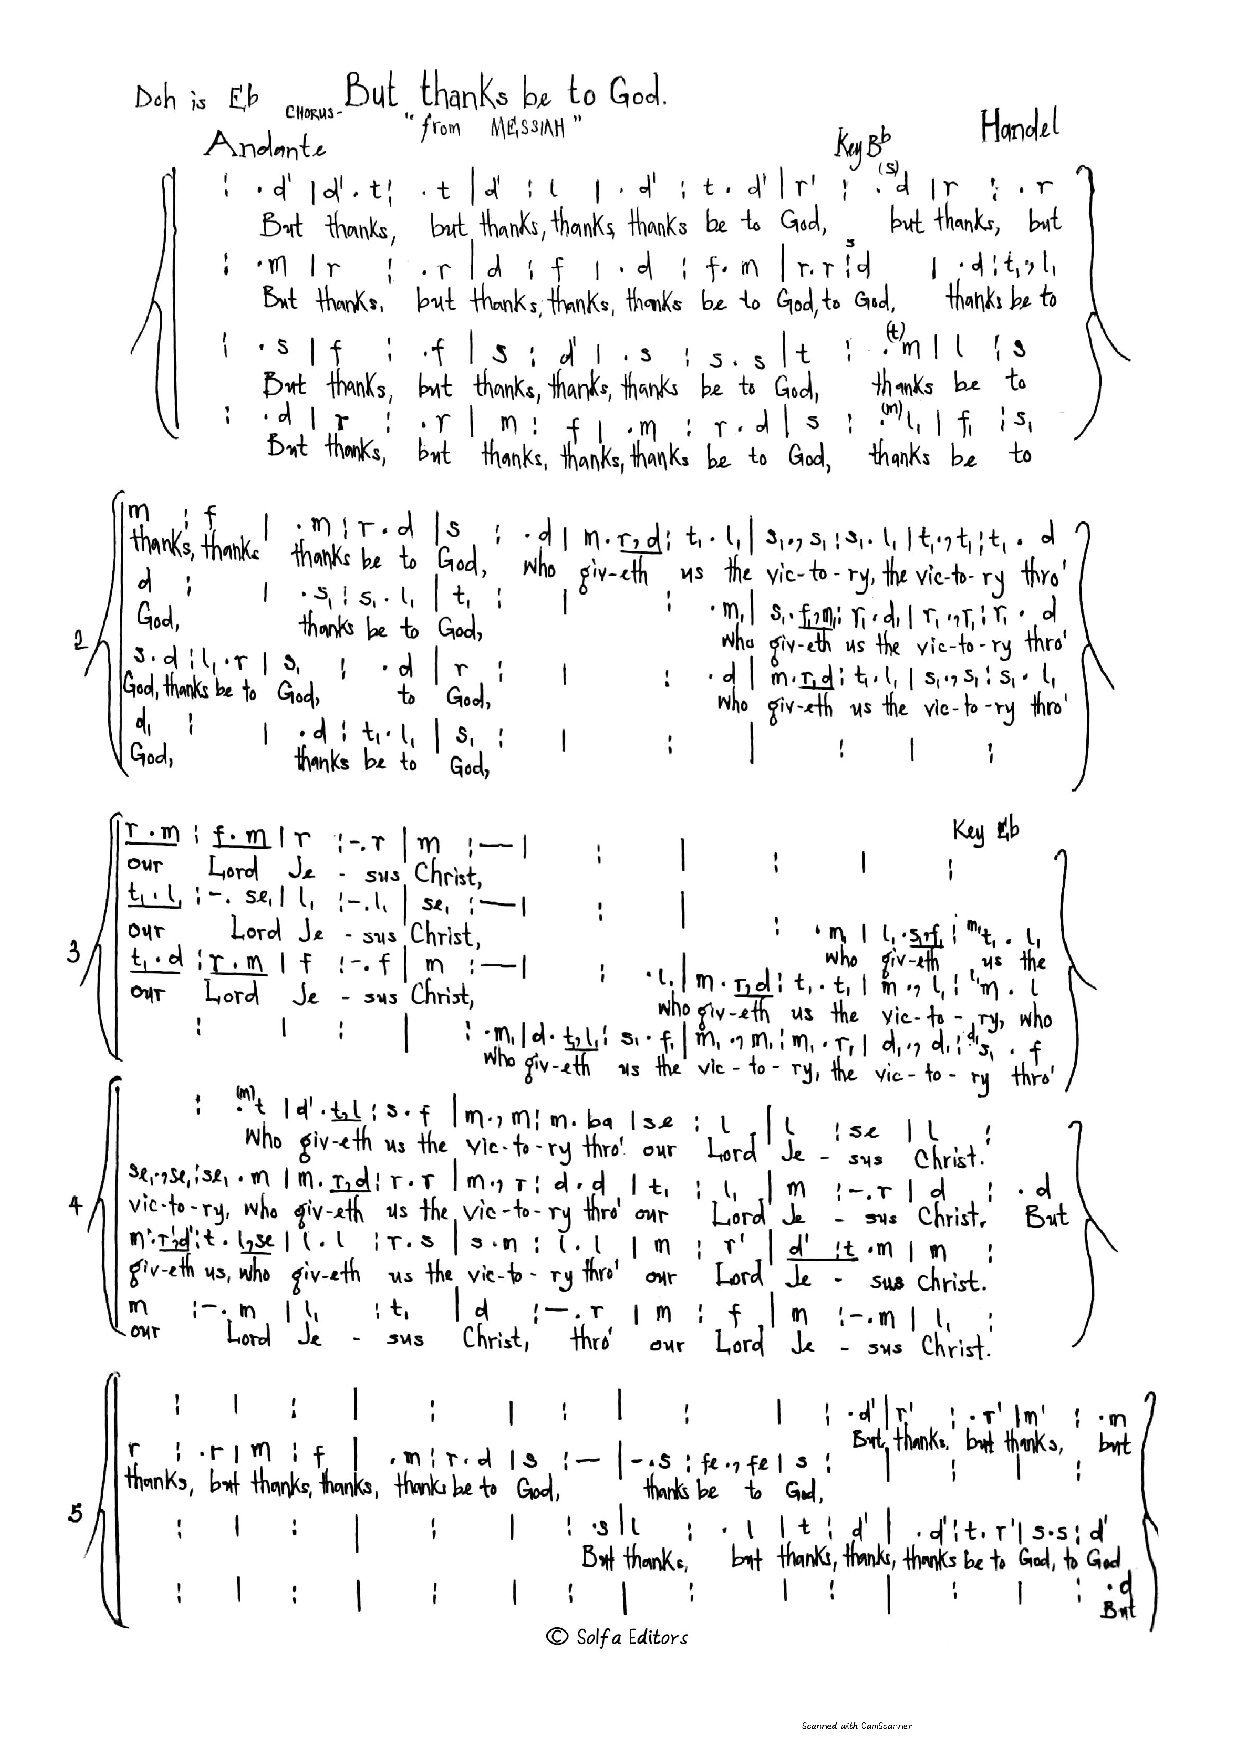 Doh is Eb CHORUS- But thanks be to God.
"from MESSIAH"
Handel
Andante
Key Bb
: .d' |d'.t: .t |d' : l | .d' : t.d' |r' : .(s)d |r : .r
But thanks, but thanks, thanks, thanks be to God, but thanks, but
: .m |r : .r |d : f | .d : f.m |r.r :sd | .d :t,,l,
But thanks, but thanks, thanks, thanks be to God, to God, thanks be to
: .s |f : .f |s : d' | .s : s.s |t : .(t)m |l : s
But thanks, but thanks, thanks, thanks be to God, thanks be to
: .d |r : .r |m : f | .m : r.d |s : .(m)l, |f, : s,
But thanks, but thanks, thanks, thanks be to God, thanks be to
2
m : f | .m : r.d |s : .d |m.r,d : t,.l, |s,.,s, :s,.l, |t,.,t, :t,.d
thanks, thanks thanks be to God, who giv-eth us the vic-to-ry, the vic-to-ry thro'
d : | .s, : s,.l, |t, : | : .m, |s,.f,m, : r,.d, |r,.,r, : r,.d
God, thanks be to God, who giv-eth us the vic-to-ry thro'
s.d :l,.r |s, : .d |r : | : .d |m.r,d : t,.l, |s,.,s, : s,.l,
God, thanks be to God, to God, who giv-eth us the vic-to-ry thro'
d, : | .d : t,.l, |s, : | : | : | :
God, thanks be to God,
Key Eb
3
r.m : f.m |r :-.r |m :— | : | : | :
our Lord Je - sus Christ,
t,.l, :-.se, |l, :-.l, |se, :— | : | : .m, |l,.s,f, : m,t,.l,
our Lord Je - sus Christ, who giv-eth us the
t,.d :r.m |f :-.f |m :— | : .l, |m.r,d : t,.t, |m.,l, : l,m.l
our Lord Je - sus Christ, who giv-eth us the vic-to-ry, who
: | : | : .m, |d.t,l, : s,.f, |m,.,m, : m,.r, |d,.,d, : d,s,.f
who giv-eth us the vic-to-ry, the vic-to-ry thro'
4
: .(m)t |d'.t,l : s.f |m.,m : m.ba |se : l |l : se |l :
Who giv-eth us the vic-to-ry thro' our Lord Je - sus Christ.
se,.,se, :se,.m |m.r,d : r.r |m.,r : d.d |t, : l, |m :-.r |d : .d
vic-to-ry, who giv-eth us the vic-to-ry thro' our Lord Je - sus Christ, But
m'.r',d' :t.l,se |l.l : r.s |s.m : l.l |m : r' |d' :t.m |m :
giv-eth us, who giv-eth us the vic-to-ry thro' our Lord Je - sus Christ.
m :-.m |l, : t, |d :—.r |m : f |m :-.m |l, :
our Lord Je - sus Christ, thro' our Lord Je - sus Christ.
5
: | : | : | : | : | : .d' |r' : .r' |m' : .m
But thanks, but thanks, but
r : .r |m : f | .m : r.d |s :— |-.s : fe.,fe |s : | : | :
thanks, but thanks, thanks, thanks be to God, thanks be to God,
: | : | : | : .s |l : .l |t : d' | .d' :t.r' |s.s : d'
But thanks, but thanks, thanks, thanks be to God, to God
: | : | : | : | : | : | : | : .d
But
© Solfa Editors
Scanned with CamScanner